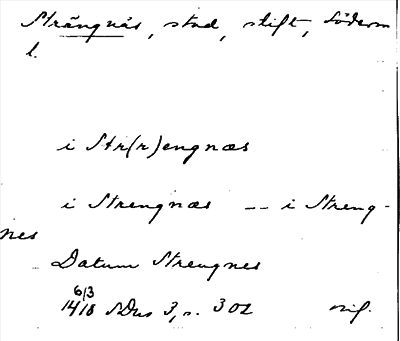 Strängnäs, stad, stift, Söderm
l.
i Str(r)engnæs
i Strengnæs -- i Streng-
nes
Datum Strengnes
6/3
1418 SDns 3, s. 302 orig.